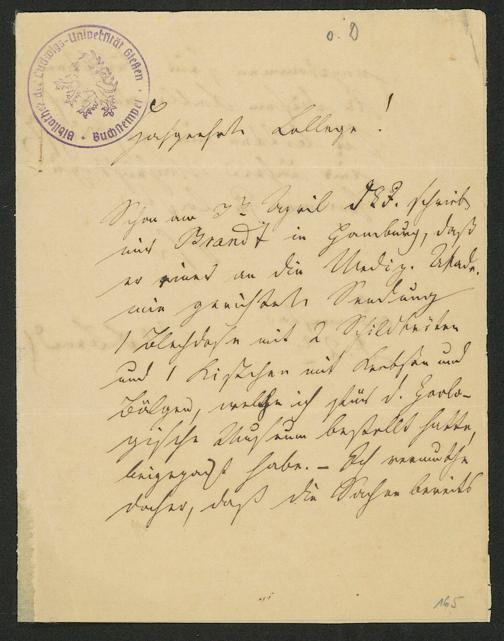 o. D
Bibliothek der Ludwigs-Universität Gießen
Buchstempel
Hochgeehrter College!
Schon am 3ten April d. J. schrieb
mir Brandt in Hamburg, daß
er einer an die Mediz. Akade-
mie gerichtete Sendung
1 Blechdose mit 2 Schildkröten
und 1 Kistchen mit Krebsen und
Bälgen, welche ich fürs d. Zoolo-
gische Museum bestellt hatte,
beigepackt habe. – Ich vermuthe
daher, daß die Sachen bereits
165